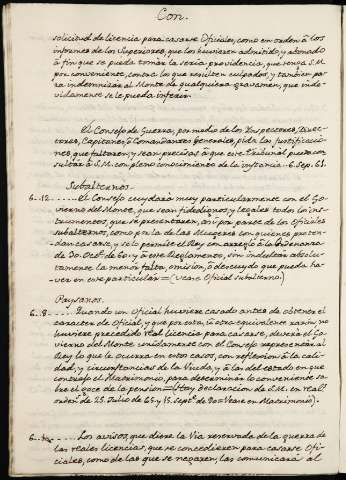 Con.
solicitud de licencia para casarse Oficiales, como en orden á los
informes de los Superiores, que los huvieren admitido, y abonado
á fin que se pueda tomar la seria providencia, que tenga S.M.
por conveniente, contra los que resulten culpados, y tambien pa
ra indemnizar al Monte de qualquiera gravamen, que inde-
vidamente se le pueda inferir
El Consejo de Guerra, por medio de los Inspectores, Direc-
tores, Capitanes, ó Comandantes Generales, pida las justificacio
nes que faltaren y sean precisas á que este Tribunal pueda con
sultár á S.M. con pleno conocimiento de la instancia - 6. Sep. 61.
Subalternos.
6..12.... El Consejo cuydará muy particularmente con el Go-
vierno del Monte, que sean fidedignos y legales todos los ins-
trumentos, que se presentaren, asi por parte de los Oficiales
subalternos, como por la de las Mugeres con quienes preten-
dan casarse, y se lo permite el Rey con arreglo á la Ordenanza
de 30. Octre. de 60. y á este Reglamento, sin indultár abso-
lutamente la menor falta, omision, ó descuydo que pueda ha-
ver en este particular = (vease Oficial subalterno.)
Paysanos.
6..8..... Quando un Oficial huviere casado antes de obtener el
caracter de Oficial, y que por esta, ú otra equivalente razon, no
huviere precedido real licencia para casarse, deverá el Go
vierno del Monte unidamente con el Consejo representár al
Rey lo que le ocurra en estos casos, con reflexion á la cali-
dad, y circunstancias de la Viuda, y á la del estado en que
contrajo el Matrimonio, para determinár lo conveniente so-
bre el goce de la pension = (Hay declaracion de S.M. en real
orden de 25. Julio de 65 y 15. Septre. de 80 = Vease en Matrimonio).
Los avisos, que diere la Via reservada de la guerra de
las reales licencias, que se concedieren para casarse Ofi-
ciales, como de las que se negaren, las comunicará al